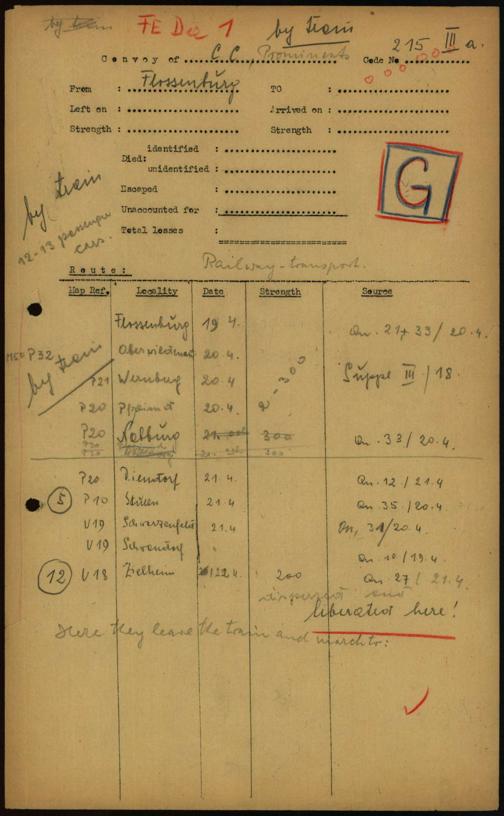 by train FE Dec 1 by train
215 III a.
Convoy of C.C. Prominents Code No
From : Flossenburg TO :
Left on : Arrived on :
Strength : Strength :
identified :
Died:
unidentified :
Escaped :
Unaccounted for :
Total losses :
G
by train
12-13 passenger
cars.
Railway-transport.
Route:
Map Ref. Locality Date Strength Source
Flossenburg 19 4. 33/20.4.
20.4.
P32
by train
P21 20.4. 300 Suppl III/18.
P20 Pfreimd 20.4.
P20 Nabburg 300 Qu. 33/20.4.
P20 300
P20 Diendorf 21.4. Qu. 12/21.4
5 P10 Stulln 21.4 Qu. 35/20.4.
V19 Schwarzenfeld 21.4 Qu, 31/20.4.
V19 Schwandorf " Qu. 10/19.4
12 V18 22.4. 200 Qu. 27/21.4.
dispersed and
liberated here!
Here they leave the train and march to: